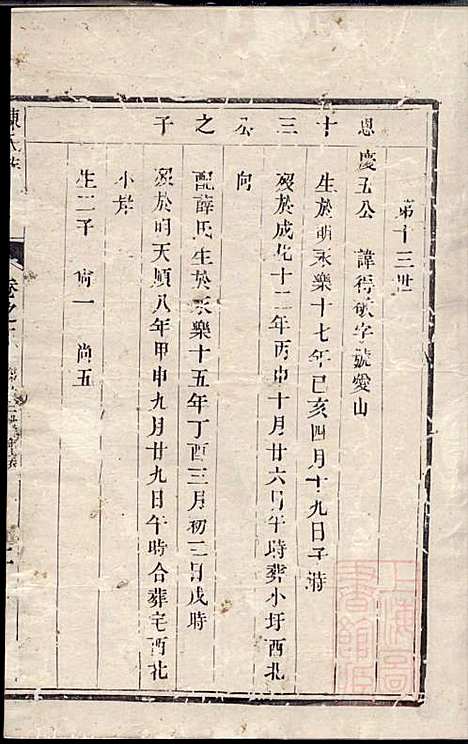 第十三世
十三公之子
思慶五公 諱得敏字號愛山
生於明永樂十七年己亥四月十九日子時
歿於成化十二年丙申十月廿六日午時葬小圩西北
向
配薛氏生於永樂十五年丁酉三月初三日戌時
歿於明天順八年甲申九月廿九日午時合葬宅西北
小岸
生二子 尚一 尚五
陳氏
卷之
上海圖書館藏